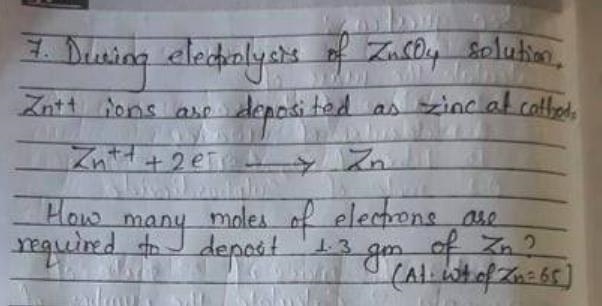 7. During electrolysis of ZnSO4 solution,
Zn++ ions are deposited as zinc at cathode
Zn++ + 2e- → Zn
How many moles of electrons are
required to deposit 1.3 gm of Zn?
(At. wt of Zn=65)